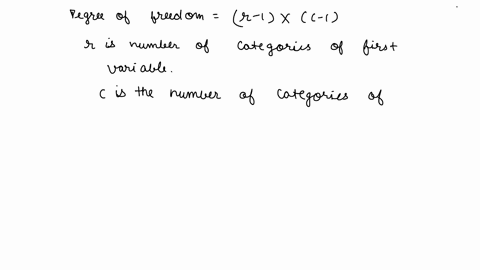 Degree of freedom = (r-1) × (c-1)
r is number of categories of first
variable.
c is the number of categories of